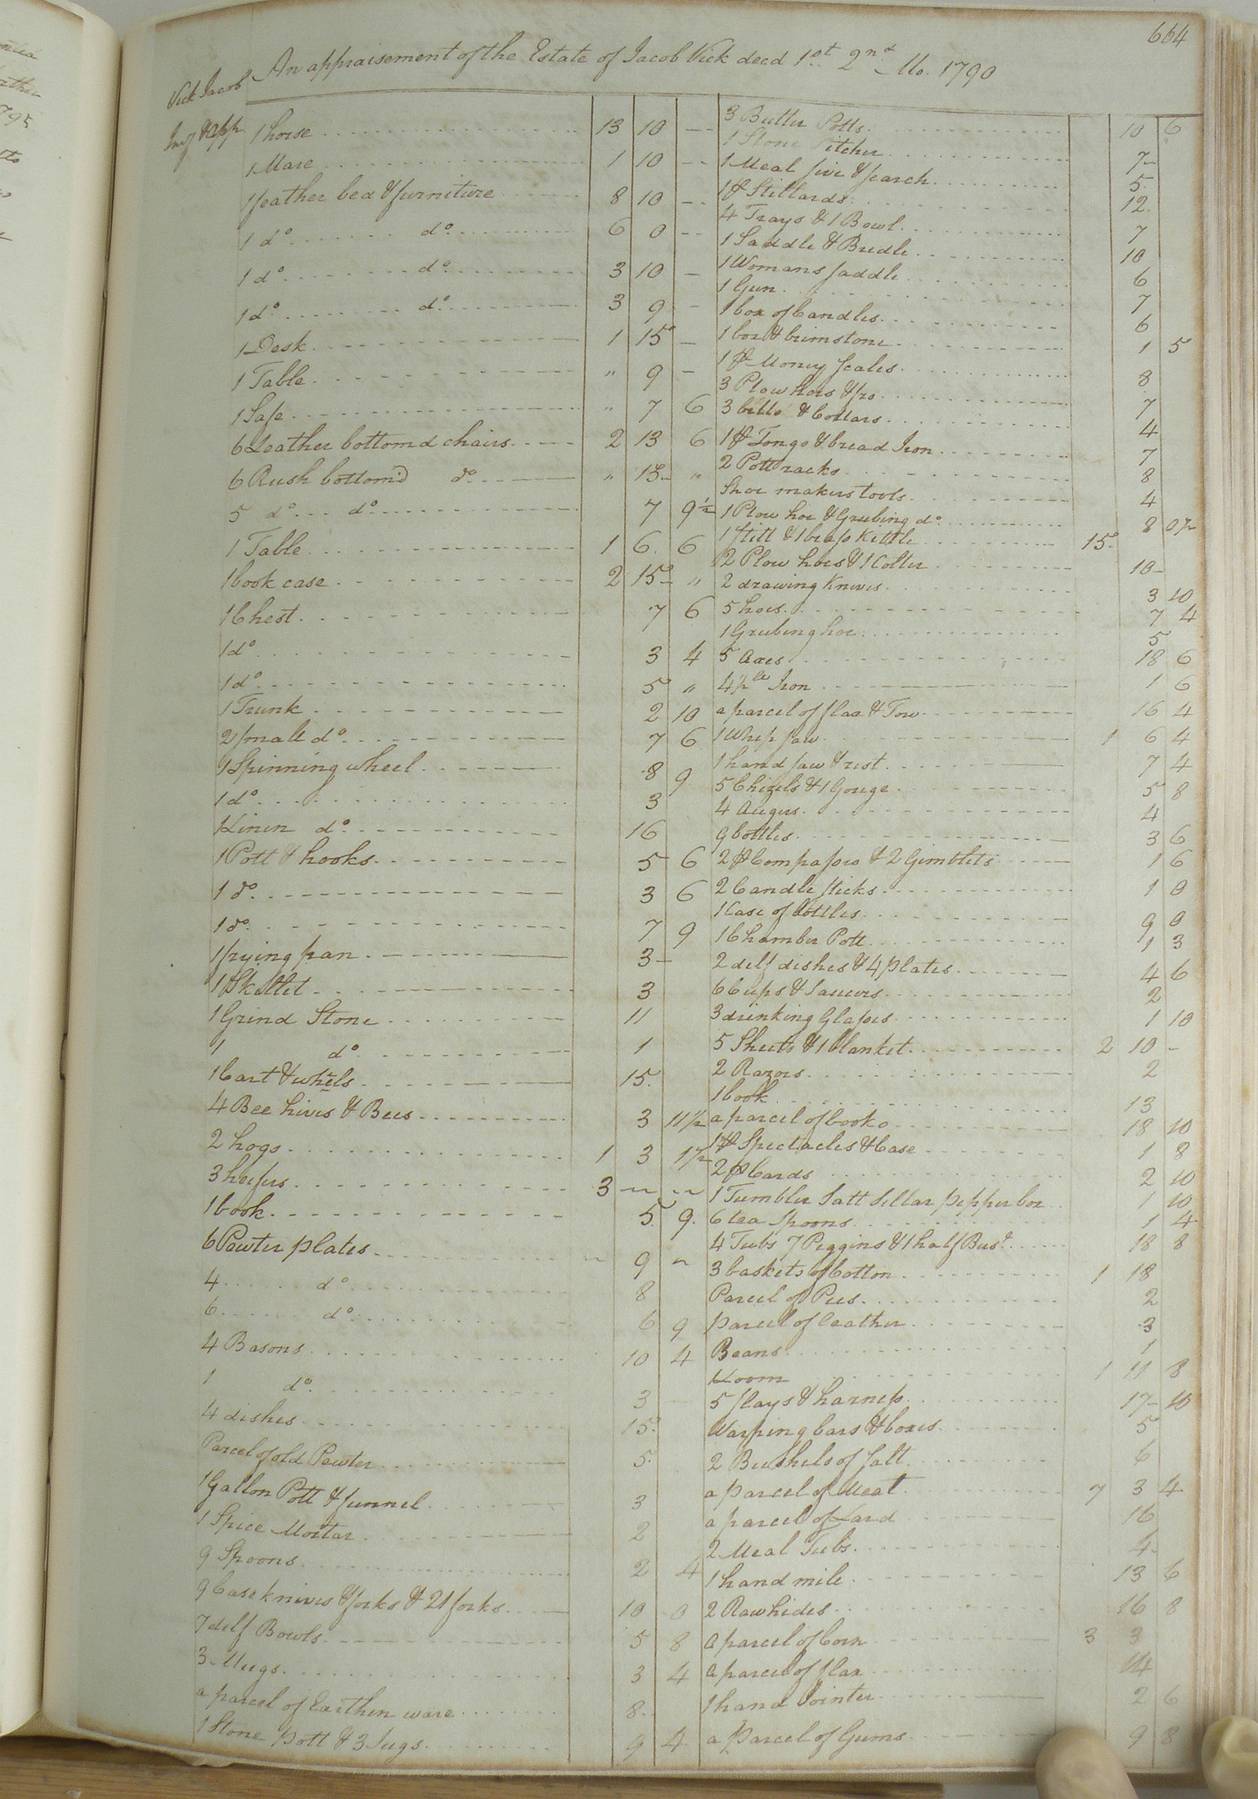 664
An appraisement of the Estate of Jacob Vick decd 1st 2nd Mo. 1790
Vick Jacob
Inv & App
1 horse 13 10 —
1 Mare 1 10 —
1 feather bed & furniture 8 10 —
1 do do 6 0 —
1 do do 3 10 —
1 do do 3 9 —
1 Desk 1 15 —
1 Table " 9 —
1 Safe " 7 6
6 Leather bottomd chairs 2 13 6
6 Rush bottomd do " 15 "
5 do do 7 9½
1 Table 1 6 6
1 book case 2 15 "
1 Chest 7 6
1 do 3 4
1 do 5 "
1 Trunk 2 10
2 small do 7 6
1 Spinning wheel 8 9
1 do 3
1 Linen do 16
1 Pott & hooks 5 6
1 do 3 6
1 do 7 9
1 frying pan 3 —
1 Skillet 3
1 Grind Stone 11
1 do 1
1 Cart & whels 15
4 Bee hives & Bees 3 11½
2 hogs 1 3 1½
3 heifers 3 — —
1 book 5 9
6 Pewter plates — 9 "
4 do 8
6 do 6 9
4 Basons 10 4
1 do 3
4 dishes 15
Parcel of old Pewter 5
1 Gallon Pott & funnel 3
1 Spice Mortar 2
9 Spoons 2 4
9 Case knives & forks & 21 forks 10 0
7 delf Bowls 5 8
3 Mugs 3 4
a parcel of Earthen ware 8
1 Stone pott & 3 Jugs 9 4
3 Butter Potts 10 6
1 Stone Pitcher 7
1 Meal sive & search 5
1 pr Stillards 12
4 Trays & 1 Bowl 7
1 Saddle & Bredle 10
1 Womans saddle 6
1 Gun 7
1 box of Candles 6
1 box & brimstone 1 5
1 pr Money scales 8
3 Plow hoes &c 7
3 bells & Collars 4
1 pr Tongs & bread Iron 7
2 Pott racks 8
Shoe makers tools 4
1 Plow hoe & Grubing do 8 0½
1 still & 1 brass Kittle 15
2 Plow hoes & 1 Colter 10
2 drawing Knives 3 10
5 hoes 7 4
1 Grubing hoe 5
5 axes 18 6
4 ps Iron 1 6
a parcel of flax & Tow 16 4
1 Whip saw 1 6 4
1 hand saw & rest 7 4
5 Chizels & 1 Gouge 5 8
4 Augers 4
9 bottles 3 6
2 pr Compasses & 2 Gimblets 1 6
2 Candle sticks 1 0
1 Case of bottles 9 0
1 Chamber Pott 1 3
2 delf dishes & 4 plates 4 6
6 Cups & Saucers 2
3 drinking Glasses 1 10
5 Sheets & 1 blanket 2 10 —
2 Razors 2
1 book 13
a parcel of books 18 10
1 pr Spectacles & Case 1 8
2 pr Cards 2 10
1 Tumbler Salt Sellar pepper box 1 10
6 tea Spoons 1 4
4 Tubs 7 Piggins & 1 half Bus. 18 8
3 baskets of Cotton 1 18
Parcel of Pees 2
parcel of leather 3
Beans 1
Loom 1 11 8
5 slays & harness 17 10
Warping bars & boxes 5
2 Bushels of salt 6
a parcel of Meat 7 3 4
a parcel of Lard 16
2 Meal Tubs 4
1 hand mile 13 6
2 Raw hides 16 8
a parcel of Corn 3 3
a parcel of flax 14
1 hand Jointer 2 6
a parcel of Gums 9 8